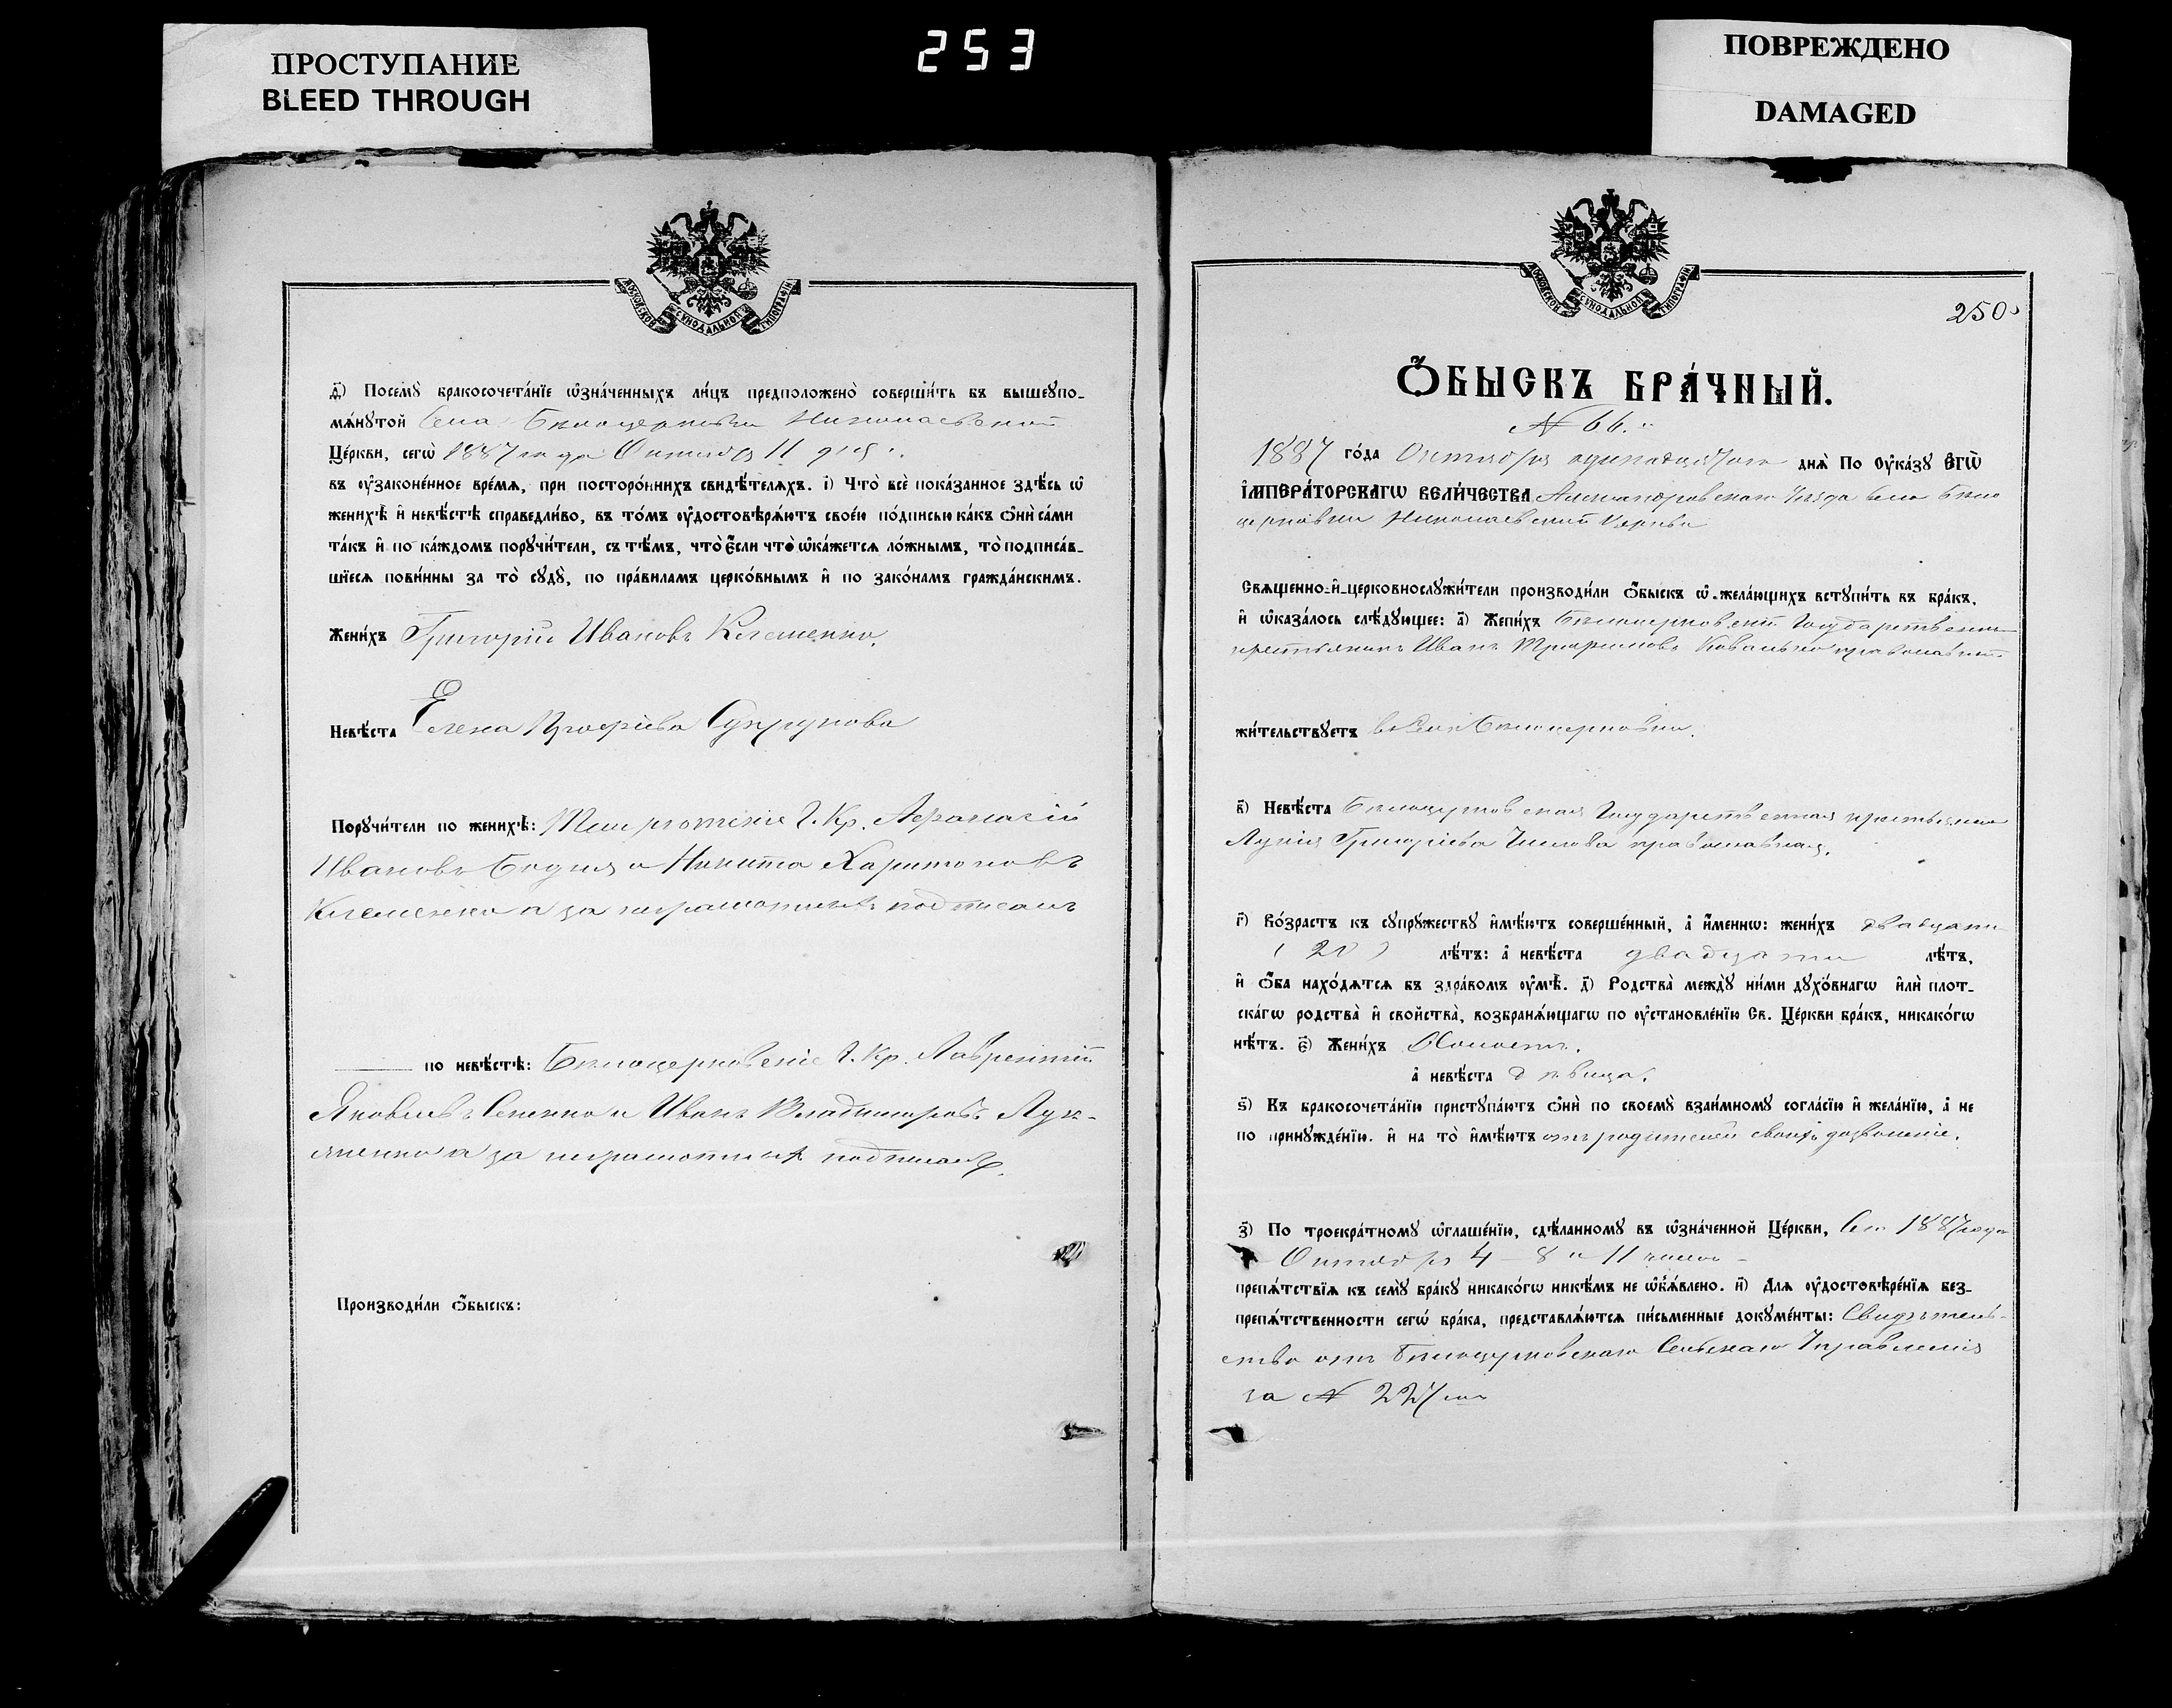 ПРОСТУПАНИЕ
BLEED THROUGH
253
ПОВРЕЖДЕНО
DAMAGED
МОСКОВСКОЙ СУНОДАЛЬНОЙ ТИПОГРАФІИ
Посемꙋ̀ бракосочета́нїе ѡ҆зна́ченныхъ ли́цъ предположено̀ соверши́ть въ вышеꙋпо-
мѧ́нꙋтой Села Бѣлоцерковки Николаевской
Це́ркви, сегѡ̀ 1887 года Октября 11 дня.
въ ᲂу҆законе́нное вре́мѧ, при посторо́ннихъ свидѣ́телѧхъ. і҃) Что̀ всѐ пока́занное здѣ́сь ѡ҆
женихѣ̀ и҆ невѣ́стѣ справедли́во, въ то́мъ ᲂу҆достовѣрѧ́ютъ свое́ю по́дписью ка́къ ѻ҆нѝ са́ми
та́къ и҆ по ка́ждомъ порꙋчи́тели, съ тѣ́мъ, что̀ є҆́сли что̀ ѡ҆ка́жетсѧ ло́жнымъ, то̀ подписа́в-
шїесѧ пови́нны за то̀ сꙋдꙋ̀, по пра́виламъ церко́внымъ и҆ по зако́намъ гражда́нскимъ.
Жени́хъ Григорій Ивановъ Клеменко.
Невѣ́ста Елена Супрунова
Порꙋчи́тели по женихѣ̀: Г. Кр. Афанасій
Ивановъ Бодня и Никита Харитоновъ
Клеменко а за неграмотныхъ подписалъ
по невѣ́стѣ: Бѣлоцерковскіе Г. Кр. Лаврентій
Яковлевъ Сененко и Иванъ Владимировъ Лук-
яненко а за неграмотныхъ подписалъ
Производи́ли ѻ҆́быскъ:
МОСКОВСКОЙ СУНОДАЛЬНОЙ ТИПОГРАФІИ
250
Ѻ҆́БЫСКЪ БРА́ЧНЫЙ.
№ 66.
1887 го́да Октября одинадцатого днѧ̀ По ᲂу҆ка́зꙋ Є҆гѡ̀
І҆МПЕРА́ТОРСКАГѠ ВЕЛИ́ЧЕСТВА Александровскаго Уѣзда села Бѣло
церковки Николаевской Церкви
Свѧщенно-и҆-церковнослꙋжи́тели производи́ли ѻ҆́быскъ ѡ҆ жела́ющихъ встꙋпи́ть въ бра́къ,
и҆ ѡ҆каза́лось слѣ́дꙋющее: а҃) Жени́хъ Бѣлоцерковскій Государственный
крестьянинъ Иванъ Трофимовъ Ковалько православный
жи́тельствꙋетъ въ селѣ Бѣлоцерковки.
в҃) Невѣ́ста Бѣлоцерковская Государственная крестьянка
Григоріева православная.
г҃) Во́зрастъ къ сꙋпрꙋ́жествꙋ и҆мѣ́ютъ соверше́нный, а҆ и҆́меннѡ: жени́хъ двадцати
( 20 ) лѣ́тъ: а҆ невѣ́ста двадцати лѣ́тъ,
и҆ ѻ҆́ба нахо́дѧтсѧ въ здра́вомъ ᲂу҆мѣ̀. д҃) Родства̀ междꙋ̀ ни́ми дꙋхо́внагѡ и҆лѝ плот-
ска́гѡ родства̀ и҆ свойства̀, возбранѧ́ющагѡ по ᲂу҆становле́нїю Св. Це́ркви бра́къ, никако́гѡ
нѣ́тъ. є҃) Жени́хъ Холостъ.
а҆ невѣ́ста дѣвица.
ѕ҃) Къ бракосочета́нїю пристꙋпа́ютъ ѻ҆нѝ по своемꙋ̀ взаи́мномꙋ согла́сїю и҆ жела́нїю, а҆ не
по принꙋжде́нїю. и҆ на то̀ и҆мѣ́ютъ отъ родителей своихъ дозволеніе.
з҃) По троекра́тномꙋ ѡ҆глаше́нїю, сдѣ́ланномꙋ въ ѡ҆зна́ченной Це́ркви, Сего 1887 года
Октября 4 – 8 и 11 числа –
препѧ́тствїѧ къ семꙋ̀ бра́кꙋ никако́гѡ никѣ́мъ не ѡ҆б̾ѧ́влено. и҃) Для ᲂу҆достовѣре́нїѧ без-
препѧ́тственности сегѡ̀ бра́ка, представлѧ́ютсѧ пи́сьменные докꙋме́нты: Свидѣтель-
ство отъ Бѣлоцерковскаго Сельскаго Управленія
за № 227